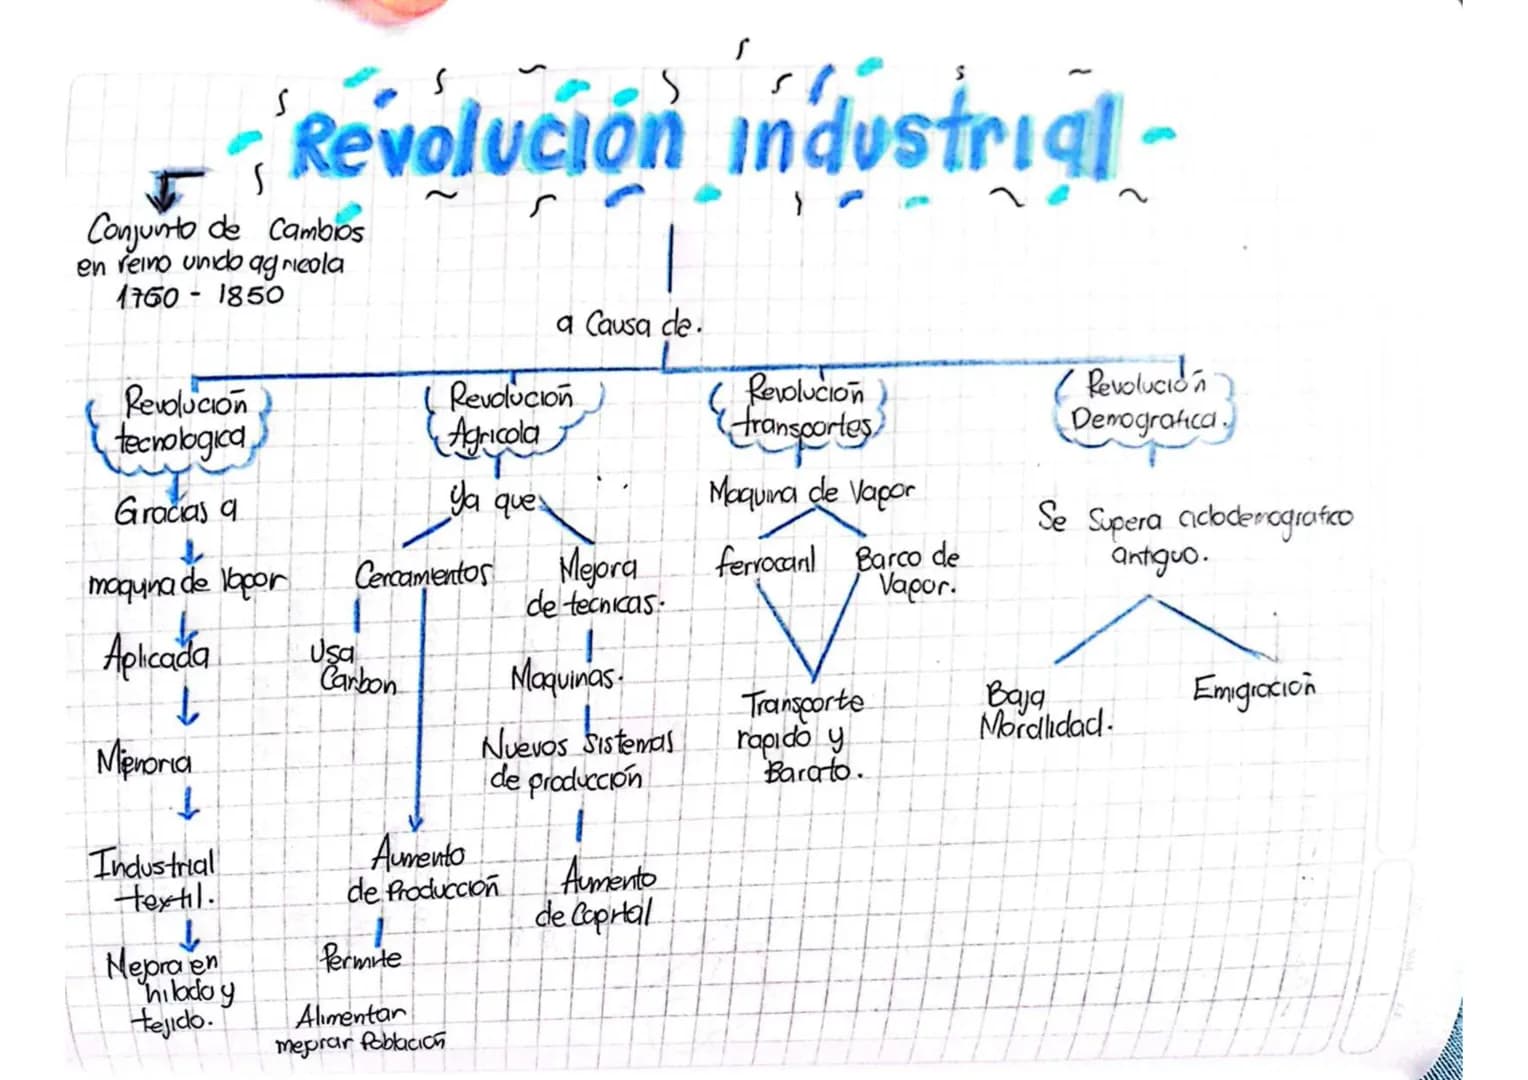 Revolución industrial
Conjunto de Cambios
en reino unido agricola
1760 - 1850
a Causa de.
Revolución
tecnologica
Gracias a
maquina de Vapor
Aplicada
Mineria
Industrial
textil.
Mejora en
hilado y
tejido.
Revolución
Agricola
Ya que
Cercamentos
Usa
Carbon
Aumento
de Producción
Permite
Alimentar
mejorar Población
Mejora
de tecnicas.
Maquinas.
Nuevos Sistemas
de producción
Aumento
de Capital
Revolución
transportes
Maquina de Vapor
ferrocaril
Barco de
Vapor.
Transporte
rapido y
Barato.
Revolución
Demografica.
Se Supera ciclodemografico
antiguo.
Baja
Mordlidad.
Emigración